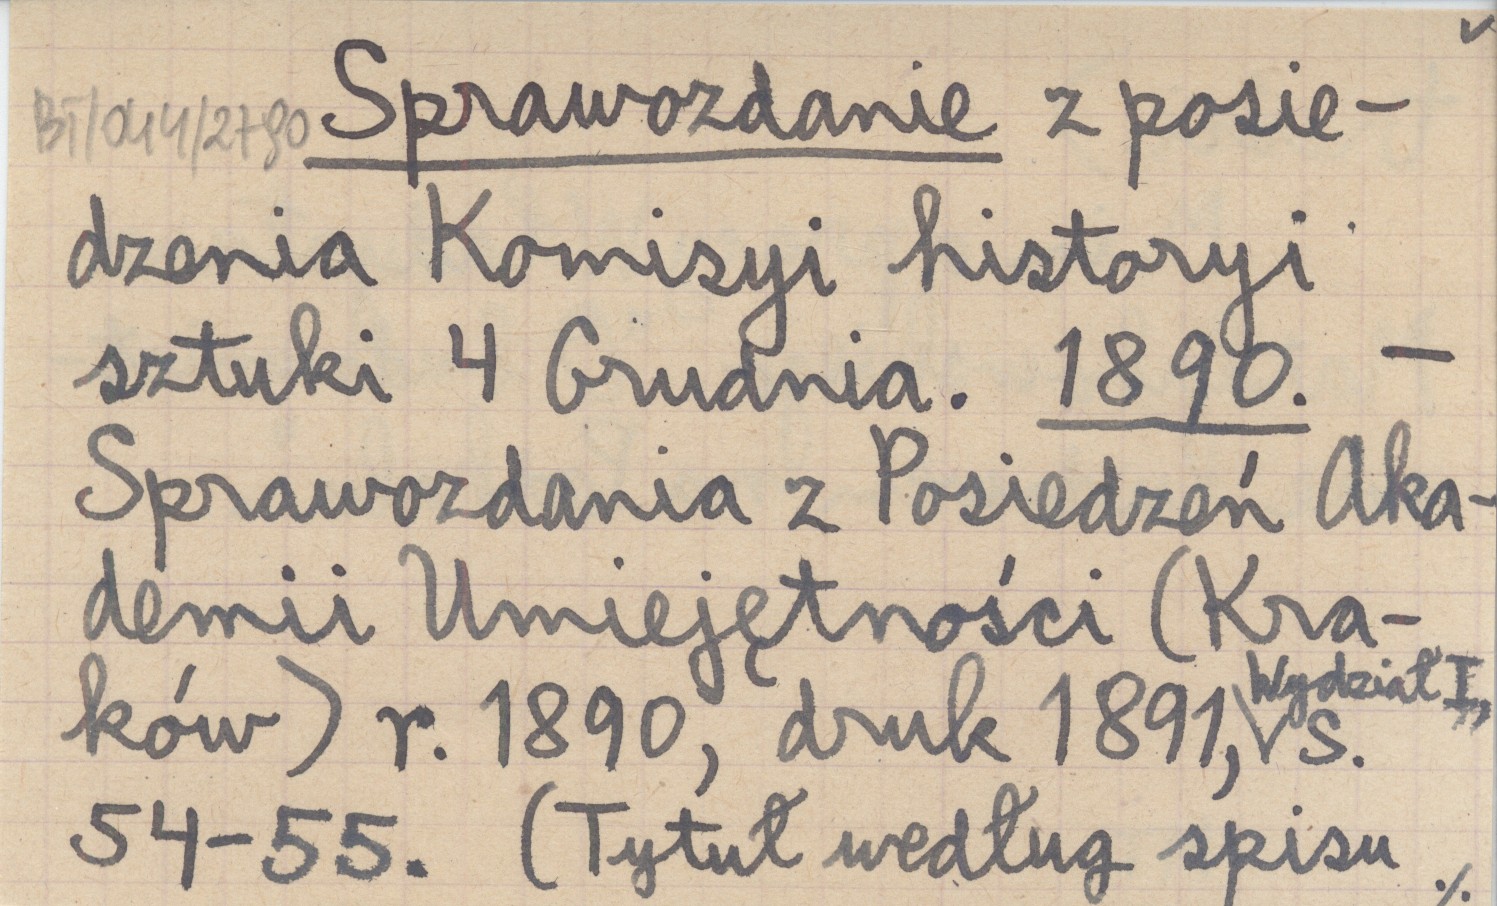 Sprawozdanie z posie-
dzenia Komisyi historyi
sztuki 4 Grudnia. 1890. —
Sprawozdania z Posiedzeń Aka-
demii Umiejętności (Kra-
ków) r. 1890, druk 1891, Wydział I, s.
54-55. (Tytuł według spisu ./.